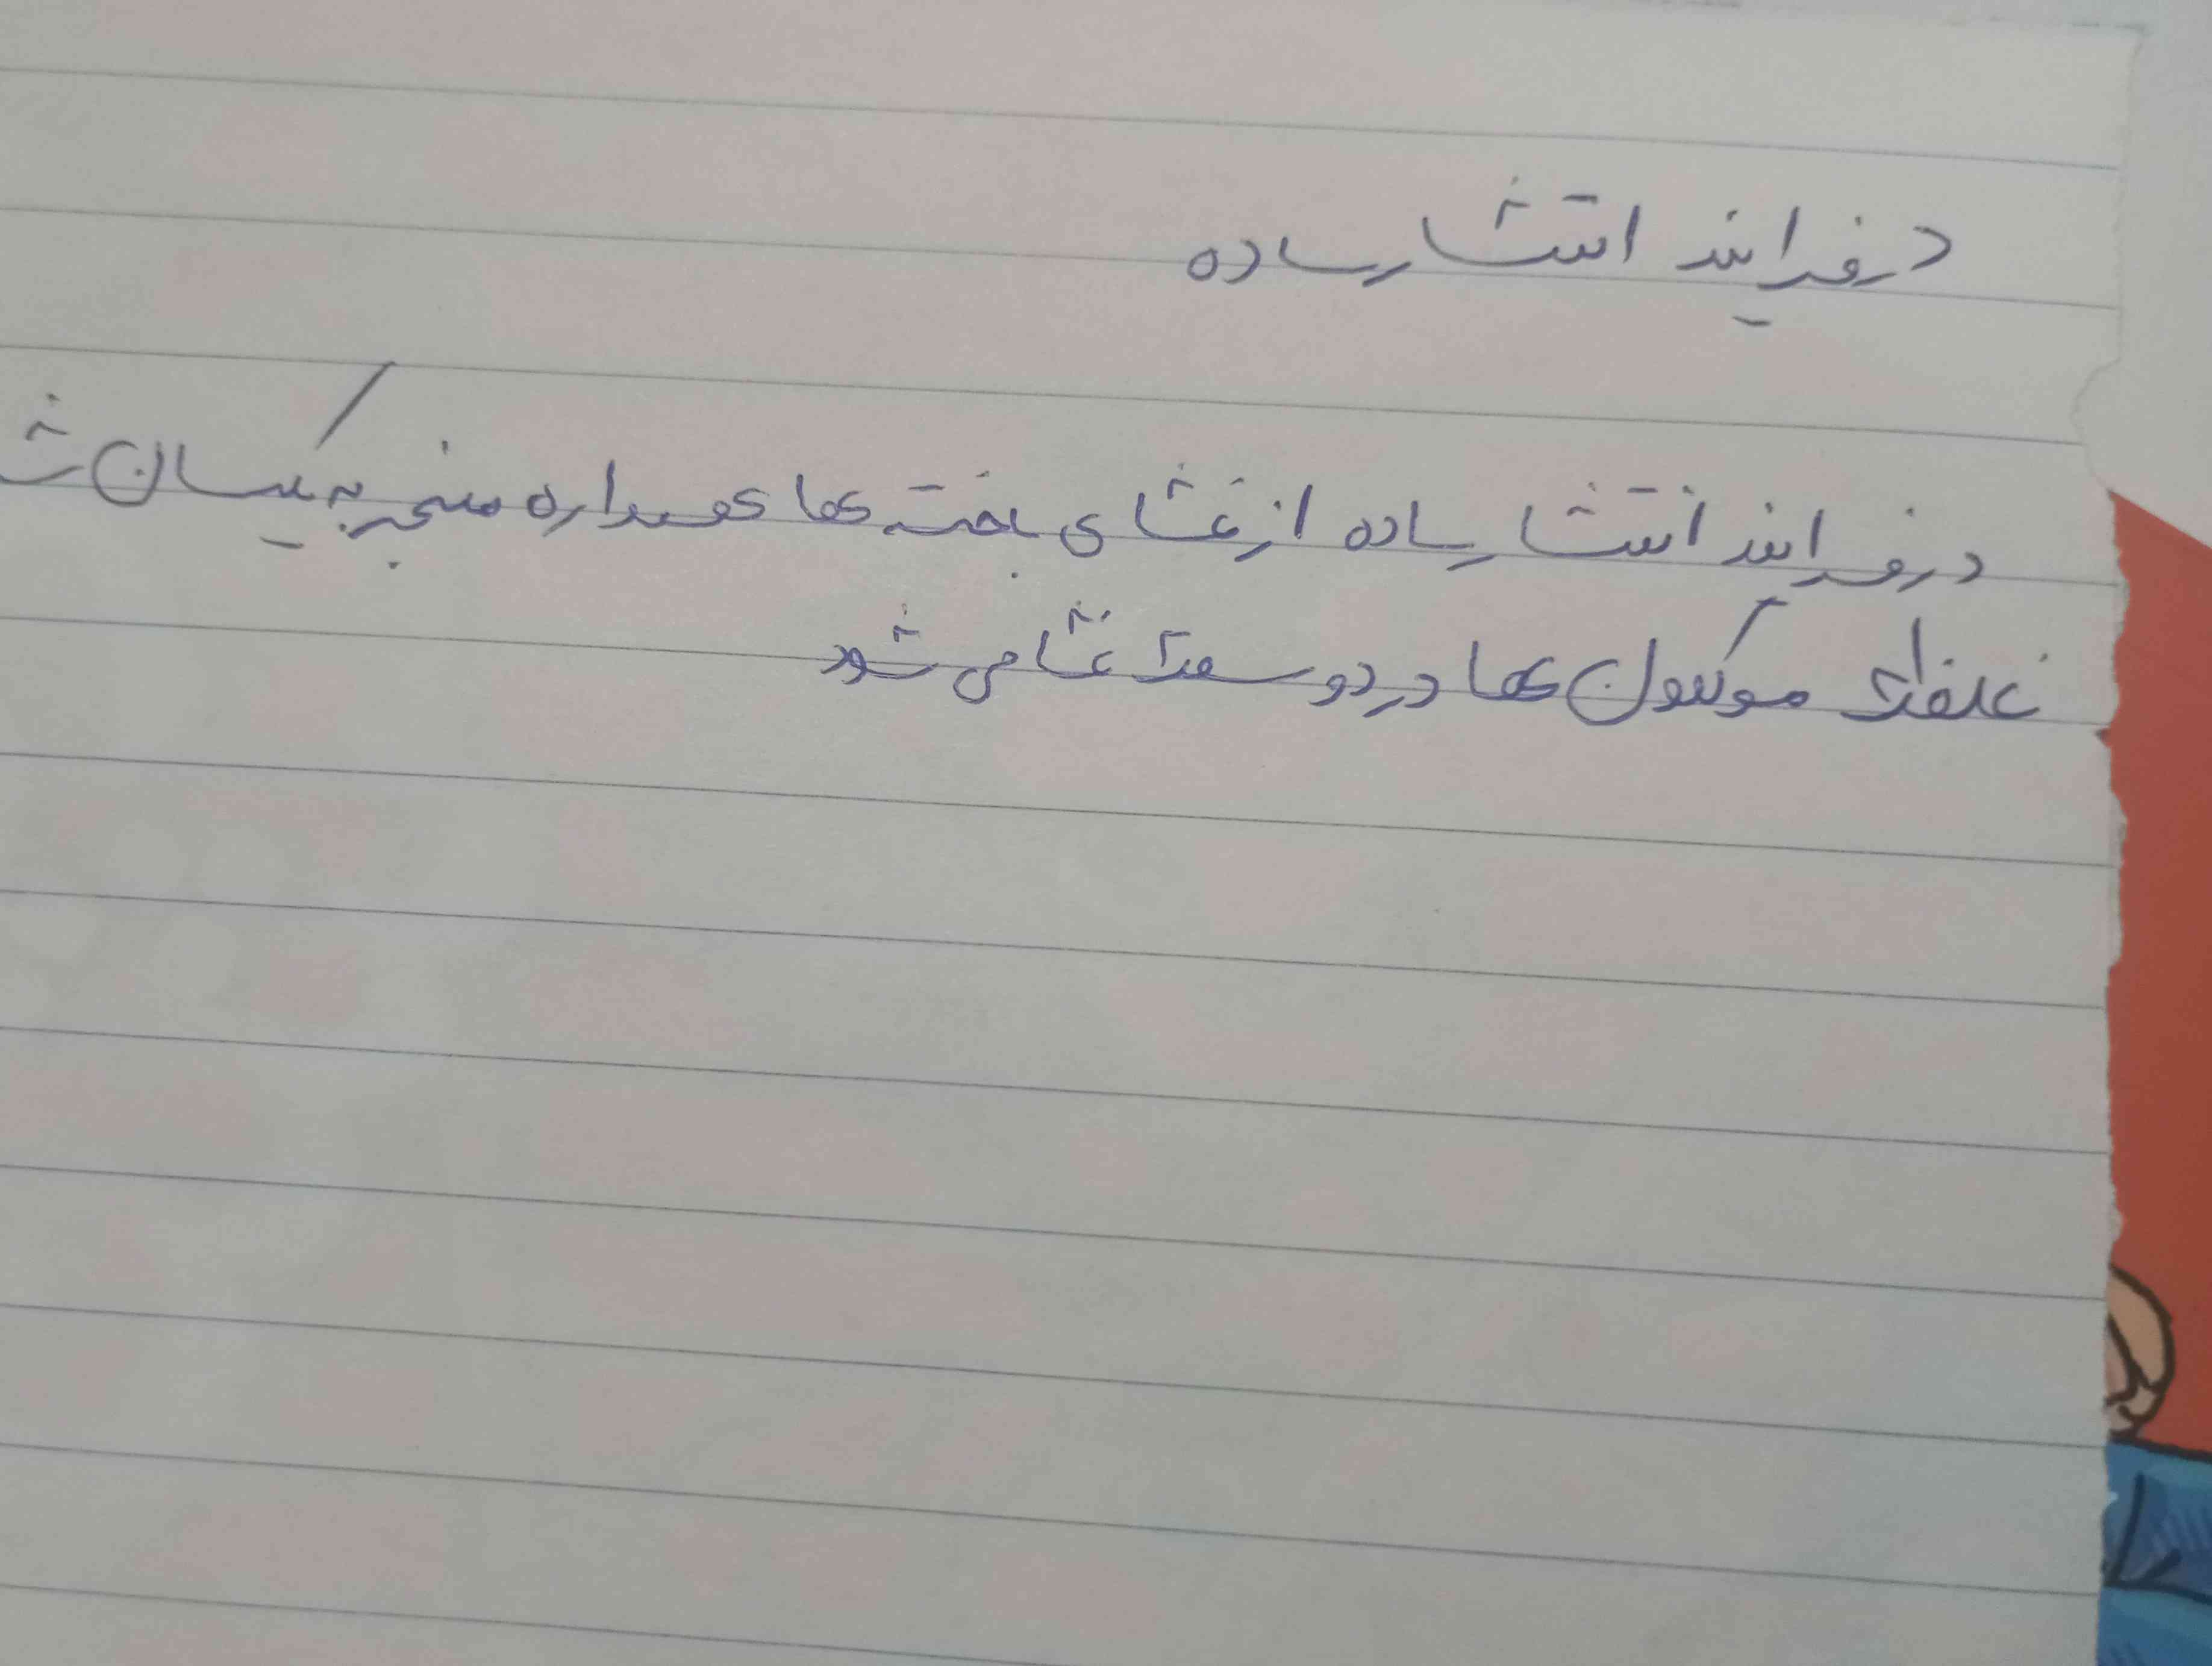 در فرایند انتشار ساده
در فرایند انتشار ساده از غشای یاخته ها همواره منجر به یکسان
غلظت مولکول ها در دو سمت غشا می شود